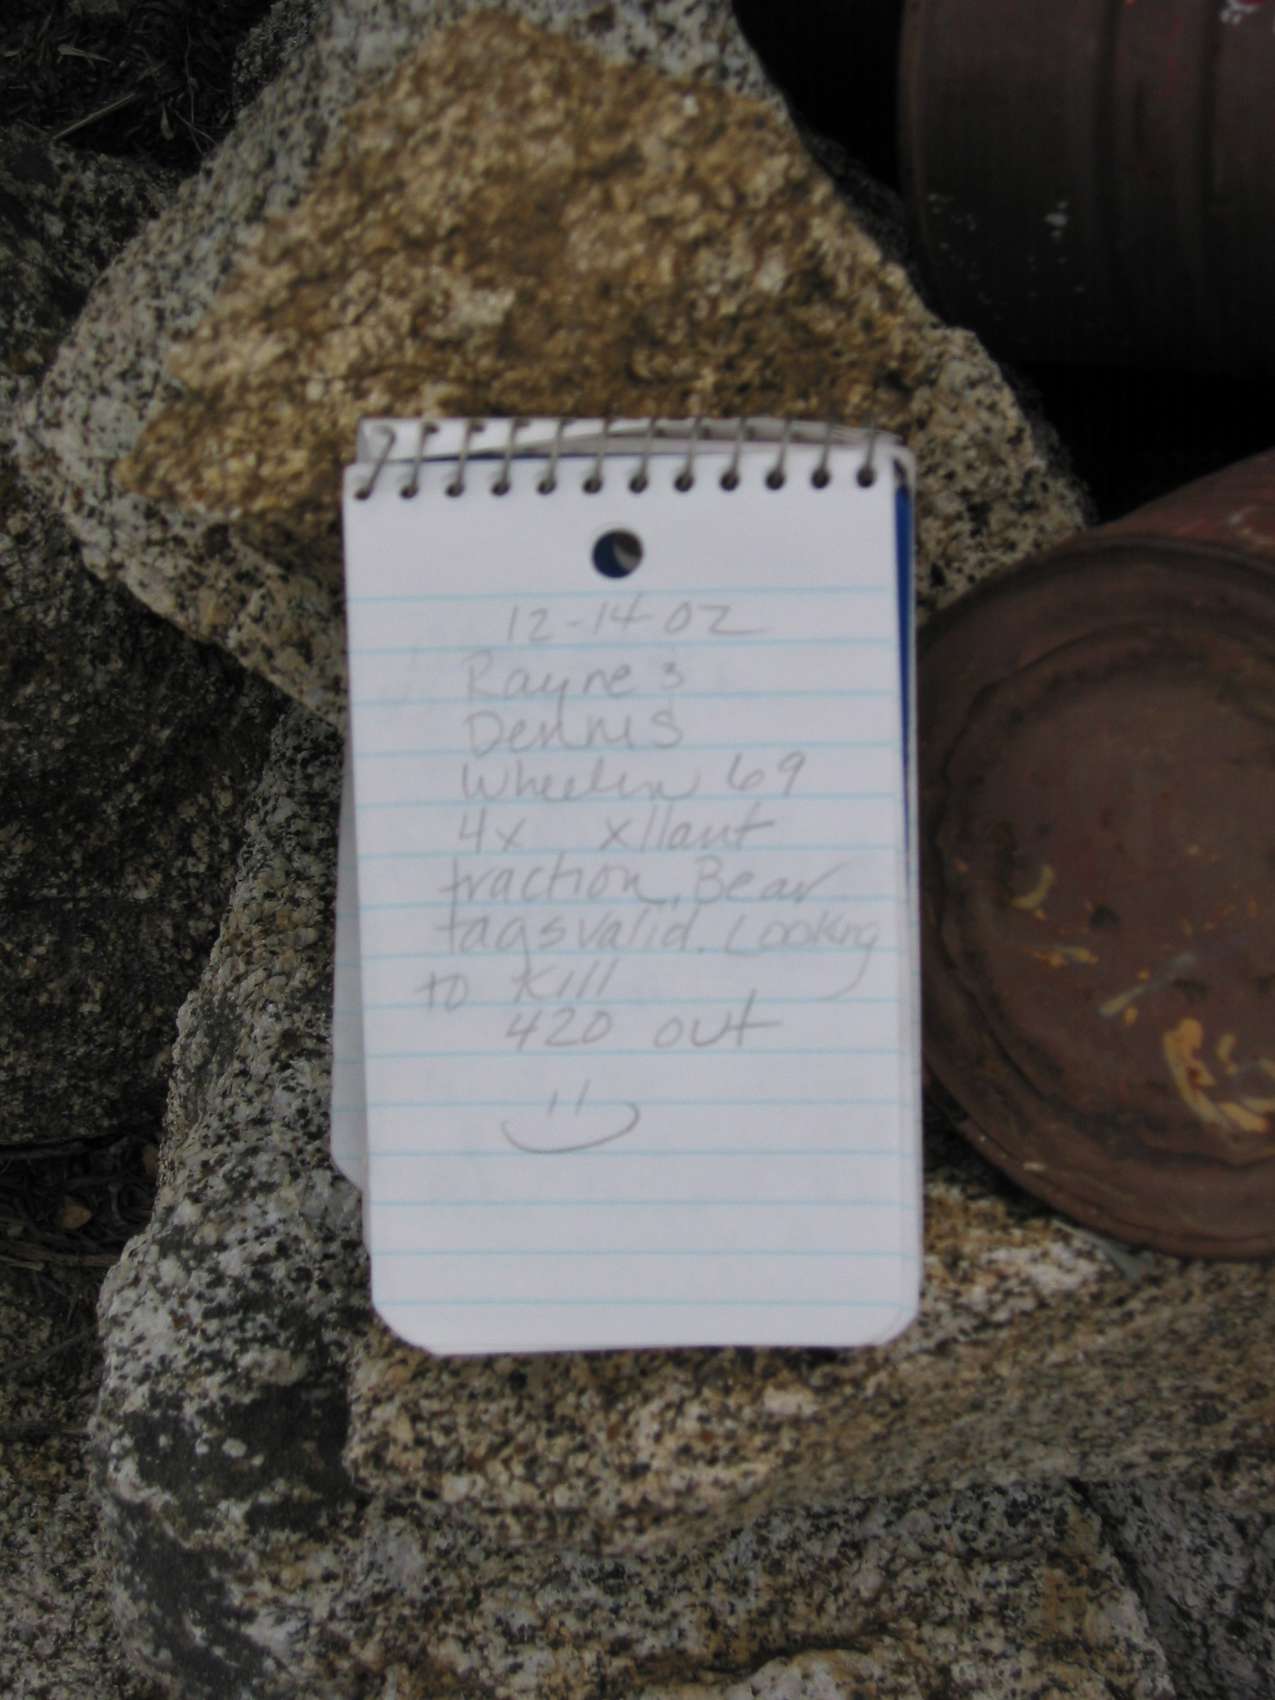 12-14-02
Rayne 3
Dennis
Wheelin 69
4x xllant
traction, Bear
tags valid. Looking
to Kill
420 out